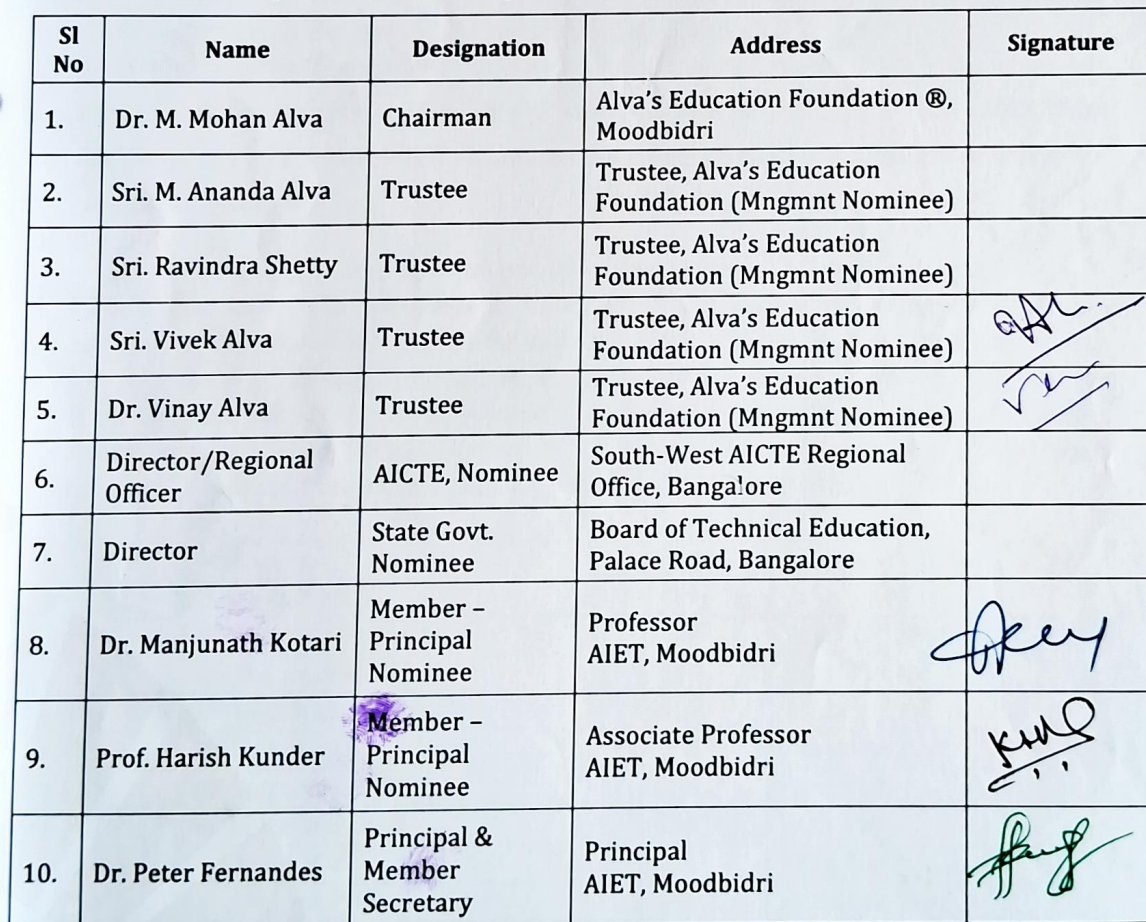 Sl No Name Designation Address Signature
1. Dr. M. Mohan Alva Chairman Alva's Education Foundation ®,
Moodbidri
2. Sri. M. Ananda Alva Trustee Trustee, Alva's Education
Foundation (Mngmnt Nominee)
3. Sri. Ravindra Shetty Trustee Trustee, Alva's Education
Foundation (Mngmnt Nominee)
4. Sri. Vivek Alva Trustee Trustee, Alva's Education
Foundation (Mngmnt Nominee)
5. Dr. Vinay Alva Trustee Trustee, Alva's Education
Foundation (Mngmnt Nominee)
6. Director/Regional
Officer
AICTE, Nominee
South-West AICTE Regional
Office, Bangalore
7. Director
State Govt.
Nominee
Board of Technical Education,
Palace Road, Bangalore
8. Dr. Manjunath Kotari
Member –
Principal
Nominee
Professor
AIET, Moodbidri
9. Prof. Harish Kunder
Member –
Principal
Nominee
Associate Professor
AIET, Moodbidri
10. Dr. Peter Fernandes
Principal &
Member
Secretary
Principal
AIET, Moodbidri